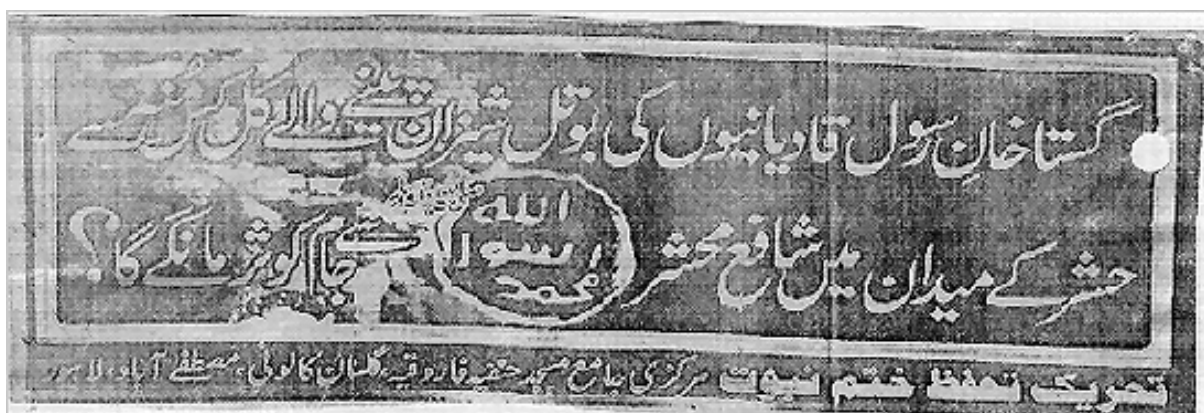 گستاخانِ رسول قادیانیوں کی بوتل شیزان پینے والا کل کس مُنہ سے
حشر کے میدان میں شافع محشر محمد رسول الله ﷺ سے جامِ کوثر مانگے گا؟
تحریک تحفظ ختم نبوت مرکزی جامع مسجد حنفیہ فاروقیہ، گلستان کالونی، مصطفےٰ آباد، لاہور